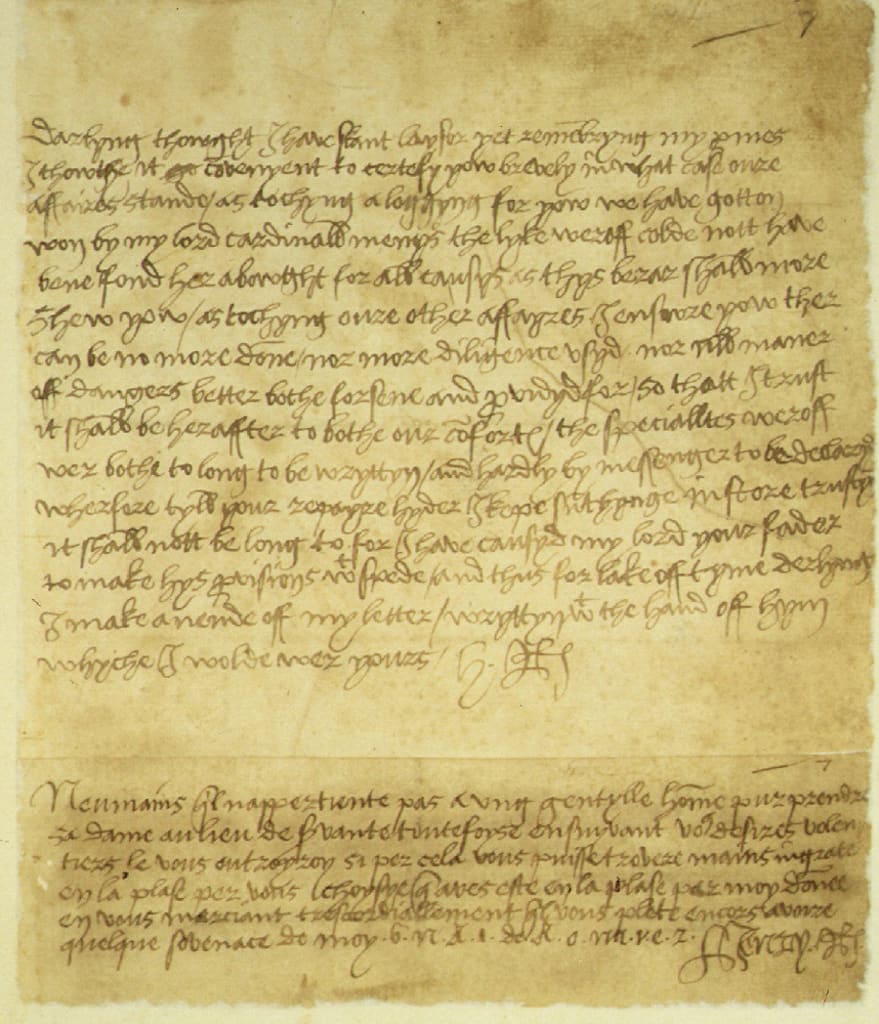 7
Darlyng thowght I have skant laysor yet remembryng my promes
I thowthe it co covenyent to certefy yow brevely in what case oure
affaires stande / as tochyng a loggyng for yow we have gotton
won by my lord cardinalls menys the lyke weroff colde nott have
bene fond her abowght for all causys as thys berar shall more
shew yow / as tochyng oure other affayres I ensure yow ther
can be no more done / nor more diligence usyd nor all maner
off dangers better bothe forsene and providyd for / so thatt I trust
it shall be heraffter to bothe our comforts / the specialltes weroff
wer bothe to long to be wryttyn / and hardly by messenger to be declaryd
wherfore tyll your repayre hyder I kepe sumthynge in store trustyng
it shall nott be long to for I have causyd my lord your fader
to make hys provisions wt spede / and thus for lake off tyme derlyng
I make an ende off my letter / wryttyn wt the hand off hym
whyche I wolde wer yours / H. R
7
Neumains quil nappertiente pas a ung gentylle home pur prendre
sa dame au lieu de servante toutefoyse ensuivant vos desires volen
tiers le vous outroyroy si per cela vous puisse trovere mains ingrate
en la plase per vous choysye que aves este en la plase per moy donee
en vous merciant trescordiallement quil vous plete encors avoire
quelque sovenace de moy . 6 . n . A . 1 . de A . o . na . v e . z . Henry R